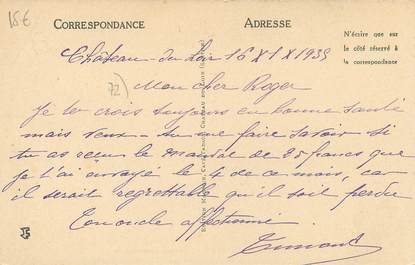 15€
CORRESPONDANCE
ADRESSE
N'écrire que sur
le côté réservé à
la correspondance
Château-du-Loir 16 XI X 1939
72)
Mon cher Roger
Je te crois toujours en bonne santé
mais veux-tu me faire savoir si
tu as reçu le mandat de 25 francs que
je t'ai envoyé le 4 de ce mois, car
il serait regrettable qu'il soit perdu
Ton oncle affectionné